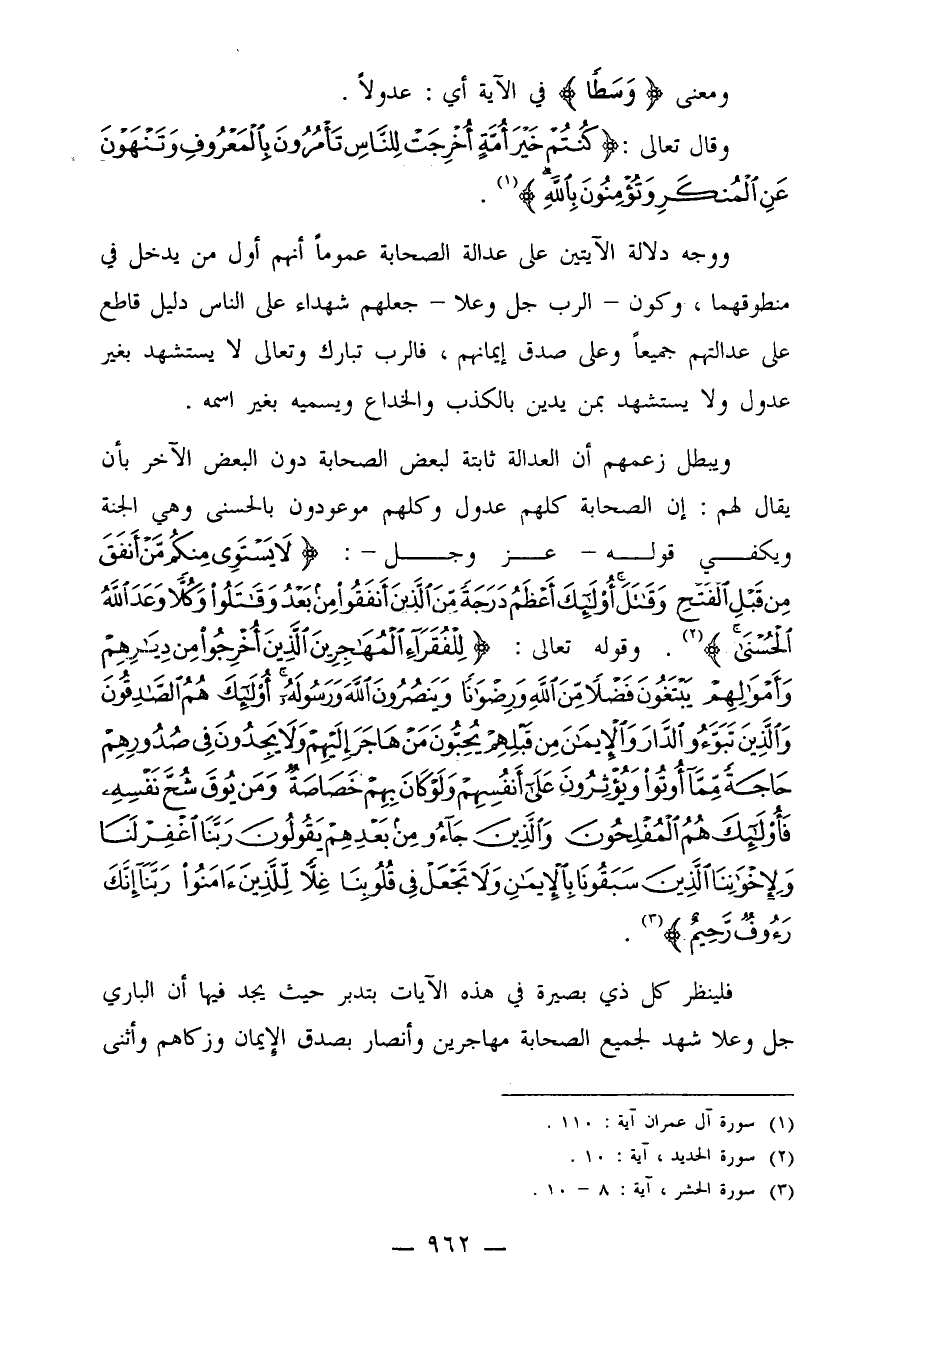 ومعنى ﴿ وَسَطًا ﴾ في الآية أي : عدولاً .
وقال تعالى : ﴿ كُنتُمْ خَيْرَ أُمَّةٍ أُخْرِجَتْ لِلنَّاسِ تَأْمُرُونَ بِالْمَعْرُوفِ وَتَنْهَوْنَ
عَنِ الْمُنكَرِ وَتُؤْمِنُونَ بِاللَّهِ ﴾ (١) .
ووجه دلالة الآيتين على عدالة الصحابة عموماً أنهم أول من يدخل في
منطوقهما ، وكون – الرب جل وعلا – جعلهم شهداء على الناس دليل قاطع
على عدالتهم جميعاً وعلى صدق إيمانهم ، فالرب تبارك وتعالى لا يستشهد بغير
عدول ولا يستشهد بمن يدين بالكذب والخداع ويسميه بغير اسمه .
ويبطل زعمهم أن العدالة ثابتة لبعض الصحابة دون البعض الآخر بأن
يقال لهم : إن الصحابة كلهم عدول وكلهم موعودون بالحسنى وهي الجنة
ويكفـــي قولـــه – عـــز وجـــل – : ﴿ لَا يَسْتَوِى مِنكُم مَّنْ أَنفَقَ
مِن قَبْلِ الْفَتْحِ وَقَٰتَلَ أُوْلَٰٓئِكَ أَعْظَمُ دَرَجَةً مِّنَ الَّذِينَ أَنفَقُواْ مِنۢ بَعْدُ وَقَٰتَلُواْ وَكُلًّا وَعَدَ اللَّهُ
الْحُسْنَىٰ ﴾ (٢) . وقوله تعالى : ﴿ لِلْفُقَرَآءِ الْمُهَٰجِرِينَ الَّذِينَ أُخْرِجُواْ مِن دِيَٰرِهِمْ
وَأَمْوَٰلِهِمْ يَبْتَغُونَ فَضْلًا مِّنَ اللَّهِ وَرِضْوَٰنًا وَيَنصُرُونَ اللَّهَ وَرَسُولَهُۥٓ أُوْلَٰٓئِكَ هُمُ الصَّٰدِقُونَ
وَالَّذِينَ تَبَوَّءُو الدَّارَ وَالْإِيمَٰنَ مِن قَبْلِهِمْ يُحِبُّونَ مَنْ هَاجَرَ إِلَيْهِمْ وَلَا يَجِدُونَ فِى صُدُورِهِمْ
حَاجَةً مِّمَّآ أُوتُواْ وَيُؤْثِرُونَ عَلَىٰٓ أَنفُسِهِمْ وَلَوْ كَانَ بِهِمْ خَصَاصَةٌ وَمَن يُوقَ شُحَّ نَفْسِهِۦ
فَأُوْلَٰٓئِكَ هُمُ الْمُفْلِحُونَ وَالَّذِينَ جَآءُو مِنۢ بَعْدِهِمْ يَقُولُونَ رَبَّنَا اغْفِرْ لَنَا
وَلِإِخْوَٰنِنَا الَّذِينَ سَبَقُونَا بِالْإِيمَٰنِ وَلَا تَجْعَلْ فِى قُلُوبِنَا غِلًّا لِّلَّذِينَ ءَامَنُواْ رَبَّنَآ إِنَّكَ
رَءُوفٌ رَّحِيمٌ ﴾ (٣) .
فلينظر كل ذي بصيرة في هذه الآيات بتدبر حيث يجد فيها أن الباري
جل وعلا شهد لجميع الصحابة مهاجرين وأنصار بصدق الإيمان وزكاهم وأثنى
(١) سورة آل عمران آية : ١١٠ .
(٢) سورة الحديد ، آية : ١٠ .
(٣) سورة الحشر ، آية : ٨ – ١٠ .
— ٩٦٢ —